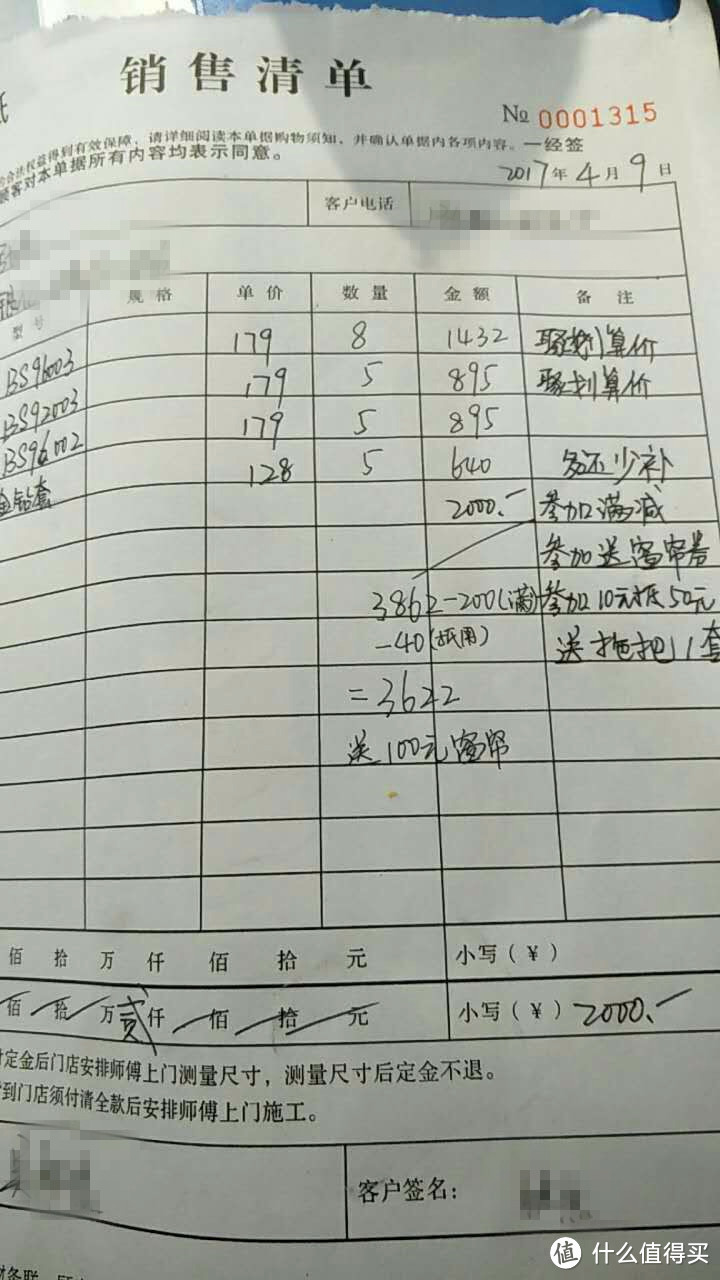 销售清单
№ 0001315
合法权益得到有效保障,请详细阅读本单据购物须知,并确认单据内各项内容。一经签
顾客对本单据所有内容均表示同意。
2017年4月9日
客户电话
型号 规格 单价 数量 金额 备注
BS96003 179 8 1432 聚划算价
BS92003 179 5 895 聚划算价
BS96002 179 5 895
金钻套 128 5 640 多还少补
2000.- 参加满减
参加送窗帘券
3862-200(满) 参加10元抵50元
-40(抵用) 送拖把1套
=3622
送100元窗帘
佰 拾 万 仟 佰 拾 元 小写(¥)
佰 拾 万 贰仟 佰 拾 元 小写(¥) 2000.-
定金后门店安排师傅上门测量尺寸,测量尺寸后定金不退。
到门店须付清全款后安排师傅上门施工。
客户签名:
值 什么值得买